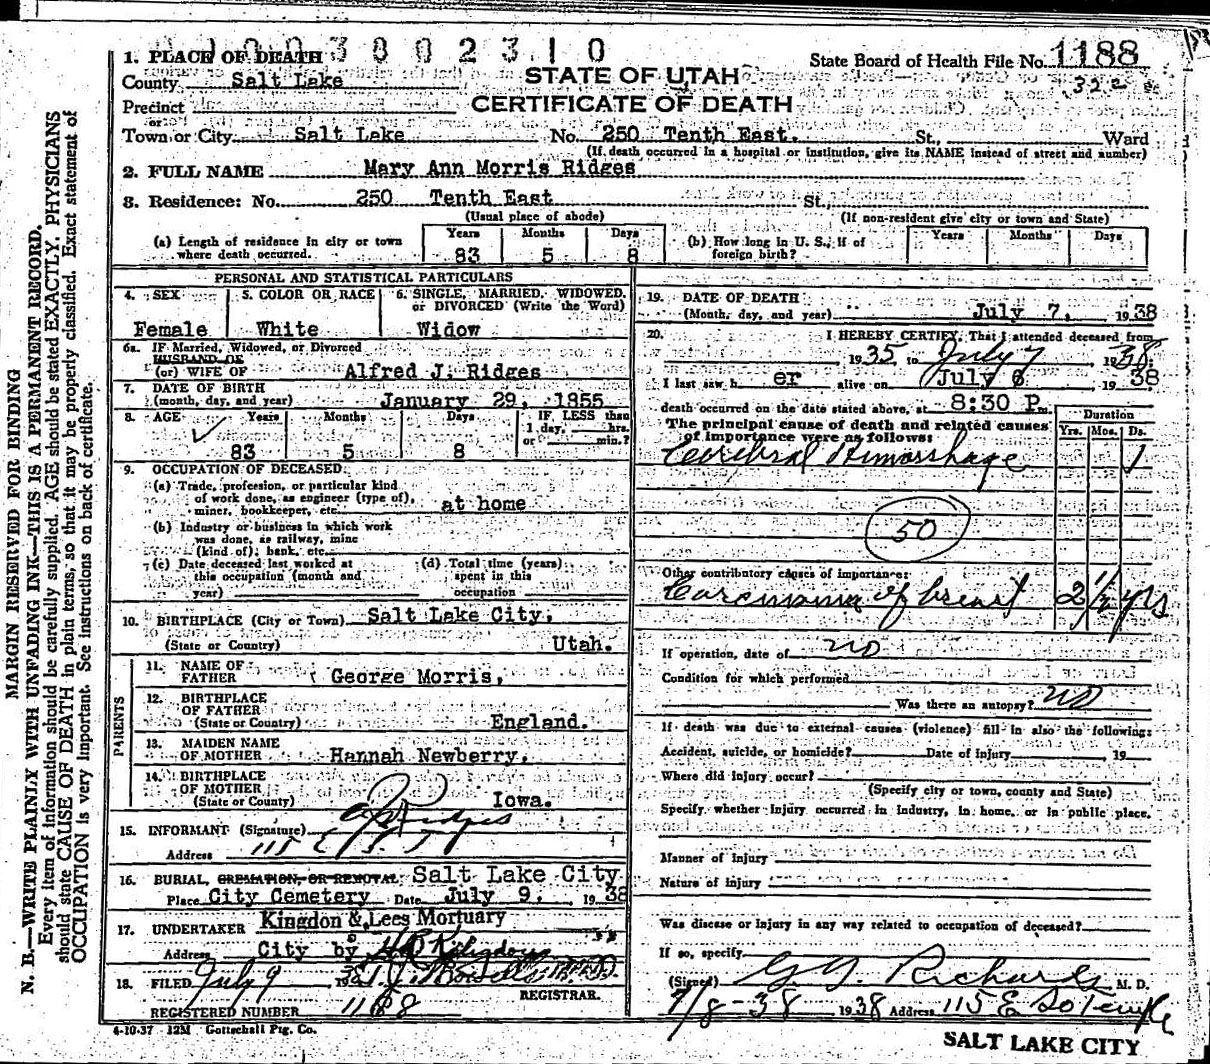 1003802310
1. PLACE OF DEATH
State Board of Health File No. 1188
322
County Salt Lake
STATE OF UTAH
Precinct
CERTIFICATE OF DEATH
or
Town or City Salt Lake No. 250 Tenth East. St. Ward
(If death occurred in a hospital or institution, give its NAME instead of street and number)
2. FULL NAME Mary Ann Morris Ridges
3. Residence: No. 250 Tenth East St.
(Usual place of abode) (If non-resident give city or town and State)
(a) Length of residence in city or town where death occurred. Years 83 Months 5 Days 8
(b) How long in U. S., if of foreign birth? Years Months Days
PERSONAL AND STATISTICAL PARTICULARS
4. SEX Female
5. COLOR OR RACE White
6. SINGLE, MARRIED, WIDOWED, or DIVORCED (Write the Word) Widow
6a. IF Married, Widowed, or Divorced
HUSBAND OF
(or) WIFE OF Alfred J. Ridges
7. DATE OF BIRTH
(month, day, and year) January 29, 1855
8. AGE Years 83 Months 5 Days 8 IF LESS than 1 day, hrs. or min.?
9. OCCUPATION OF DECEASED
(a) Trade, profession, or particular kind
of work done, as engineer (type of),
miner, bookkeeper, etc. at home
(b) Industry or business in which work
was done, as railway, mine
(kind of); bank, etc.
(c) Date deceased last worked at
this occupation (month and
year)
(d) Total time (years)
spent in this
occupation
10. BIRTHPLACE (City or Town) Salt Lake City,
(State or Country) Utah.
PARENTS
11. NAME OF
FATHER George Morris,
12. BIRTHPLACE
OF FATHER
(State or Country) England.
13. MAIDEN NAME
OF MOTHER Hannah Newberry.
14. BIRTHPLACE
OF MOTHER
(State or County) Iowa.
15. INFORMANT (Signature) Ridges
Address 115 E
16. BURIAL, CREMATION, OR REMOVAL: Salt Lake City
Place City Cemetery Date July 9, 1938
17. UNDERTAKER Kingdon & Lees Mortuary
Address City by
18. FILED July 9 1938
REGISTRAR.
REGISTERED NUMBER 1188
4-10-37 12M Gottschall Ptg. Co.
19. DATE OF DEATH
(Month, day, and year) July 7, 1938
20. I HEREBY CERTIFY, That I attended deceased from
1935 to July 7 1938.
I last saw h er alive on July 6 1938
death occurred on the date stated above, at 8:30 P. m.
The principal cause of death and related causes
of importance were as follows:
Duration
Yrs. Mos. Ds.
Cerebral Hemorrhage 1
50
Other contributory causes of importance:
Carcinoma of breast 2 1/2 yrs
If operation, date of no
Condition for which performed
Was there an autopsy? no
If death was due to external causes (violence) fill in also the following:
Accident, suicide, or homicide? Date of injury 19
Where did injury occur?
(Specify city or town, county and State)
Specify whether injury occurred in industry, in home, or in public place,
Manner of injury
Nature of injury
Was disease or injury in any way related to occupation of deceased?
If so, specify
(Signed) G. G. Richards M. D.
7/8-38 1938 Address 115 E So Temple
SALT LAKE CITY
MARGIN RESERVED FOR BINDING
N. B.—WRITE PLAINLY WITH UNFADING INK—THIS IS A PERMANENT RECORD.
Every item of information should be carefully supplied. AGE should be stated EXACTLY. PHYSICIANS
should state CAUSE OF DEATH in plain terms, so that it may be properly classified. Exact statement of
OCCUPATION is very important. See instructions on back of certificate.